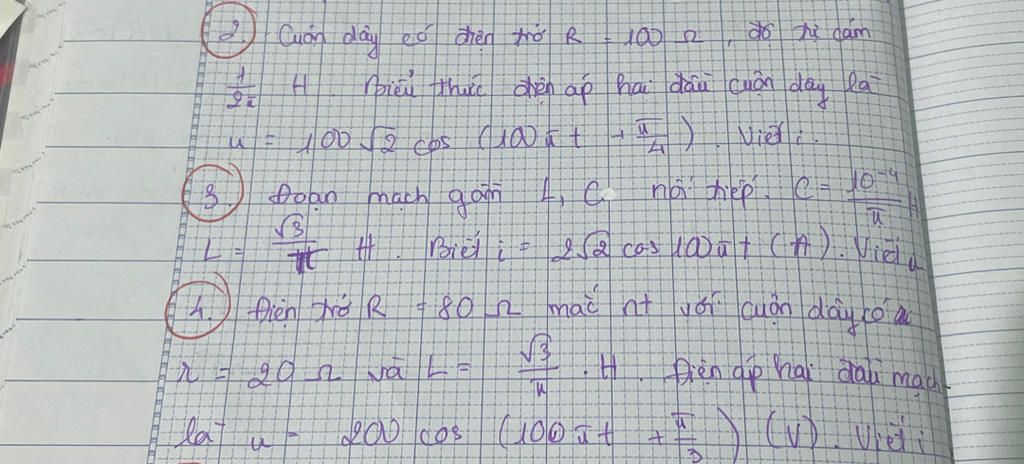 2. Cuộn dây có điện trở R = 100 Ω, độ tự cảm
1/2π H Biểu thức điện áp hai đầu cuộn dây là
u = 100√2 cos (100πt + π/4). Viết i.
3. Đoạn mạch gồm L, C nối tiếp. C = 10^-4/π H
L = √3/π H. Biết i = 2√2 cos 100πt (A). Viết u
4. Điện trở R = 80 Ω mắc nt với cuộn dây có
r = 20 Ω và L = √3/π . H. Điện áp hai đầu mạch
là u = 200 cos (100πt + π/3) (V). Viết i